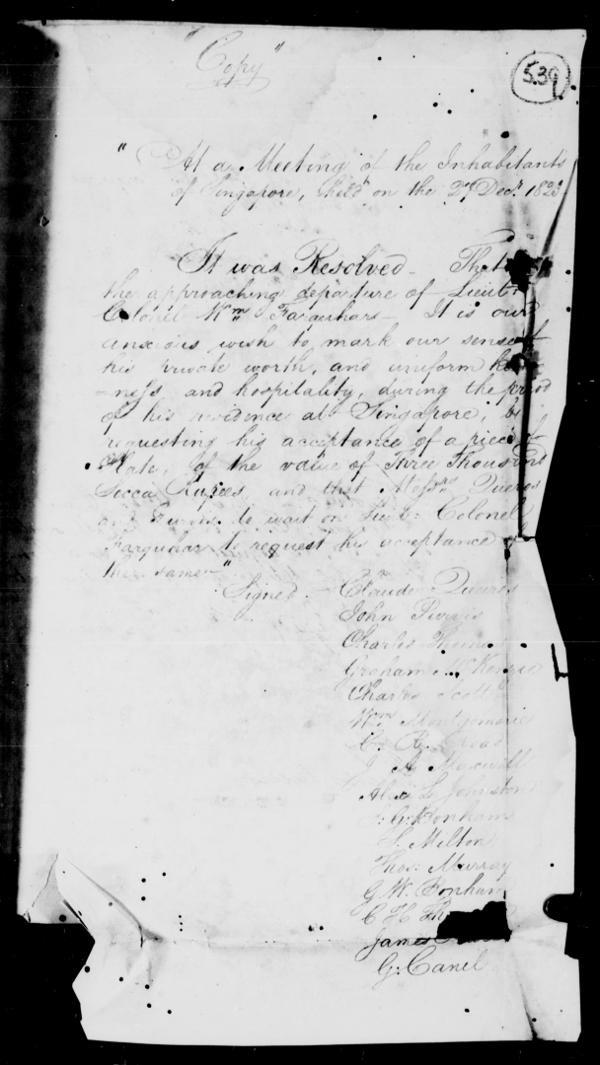 "Copy"
539
" At a Meeting of the Inhabitants
of Singapore, held on the 2nd Decr. 1823
It was Resolved - That
the approaching departure of Lieut.
Colonel Wm. Farquhar - It is our
anxious wish to mark our sense of
his private worth, and uniform
-ness and hospitality, during the period
of his residence at Singapore, by
requesting his acceptance of a piece of
Plate, of the value of Three Thousand
Sicca Rupees, and that Messrs. Queiros
and Purvis to wait on Lieut. Colonel
Farquhar to request his acceptance of
the same "
Signed - Claude Queiros
John Purvis
Charles
Graham McKenzie
Charles Scott
Wm. Montgomerie
C. R. Read
A. Maxwell
Alex L Johnston
S. G. Bonham
S. Milton
Thos. Murray
G. W. Bonham
C H
James
G. Canel